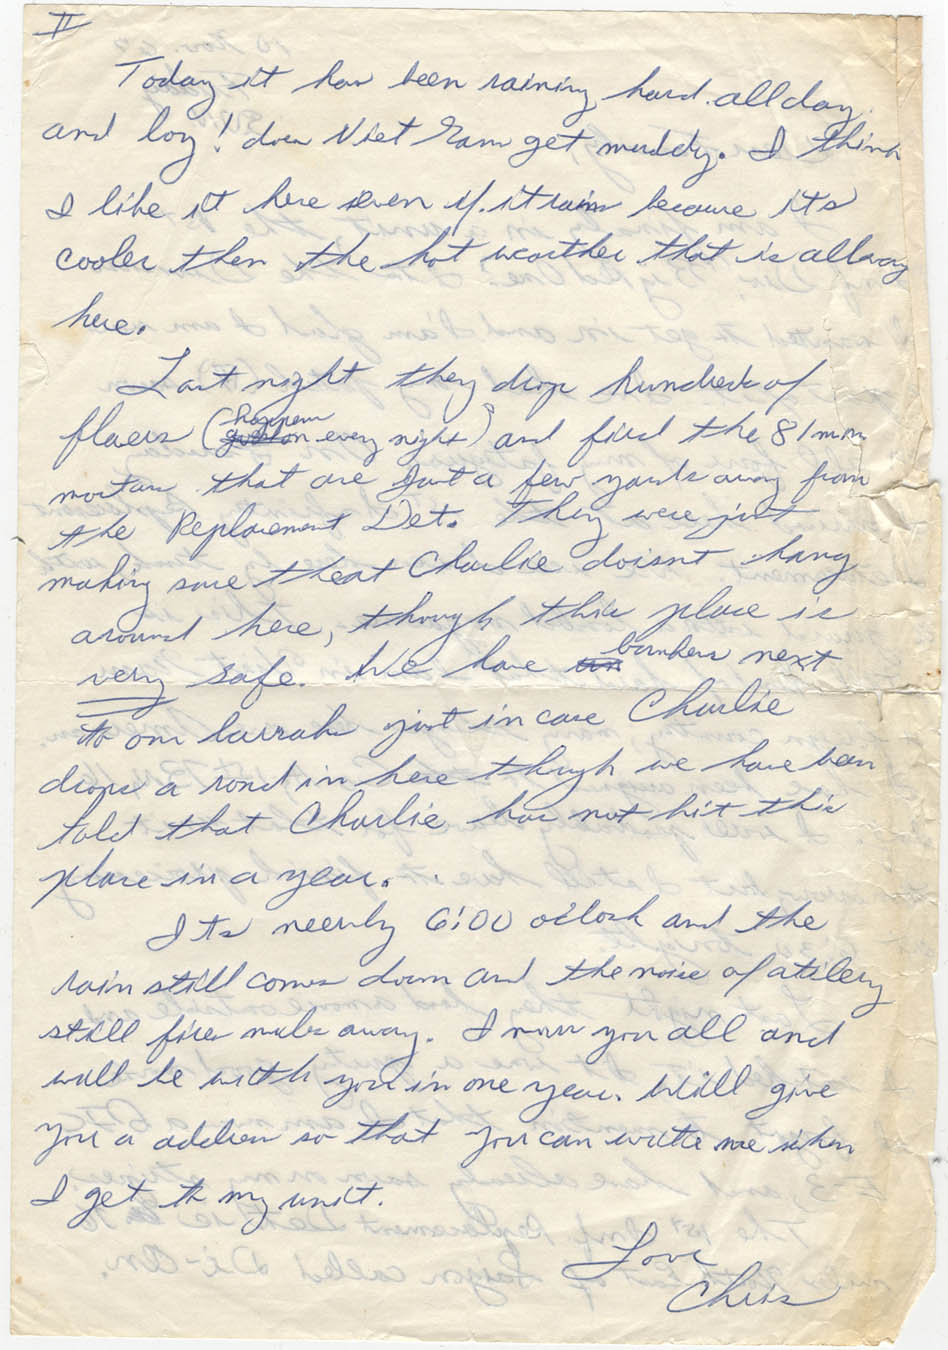 II
Today it has been raining hard all day,
and boy! does Viet Nam get muddy. I think
I like it here even if it rains because its
cooler then the hot weather that is allway
here.
Last night they drop hundreds of
flaers (happen every night) and fired the 81mm
mortars that are just a few yards away from
the Replacement Det. They were just
making sure theat Charlie doisnt hang
around here, though this place is
very safe. We have bunkers next
to our barraks just in case Charlie
drops a rond in here though we have been
told that Charlie has not hit this
place in a year.
Its neerly 6:00 oclock and the
rain still comes down and the noise of atilery
still fires miles away. I miss you all and
will be with you in one year. Will give
you a address so that you can write me when
I get to my unit.
Love
Chris